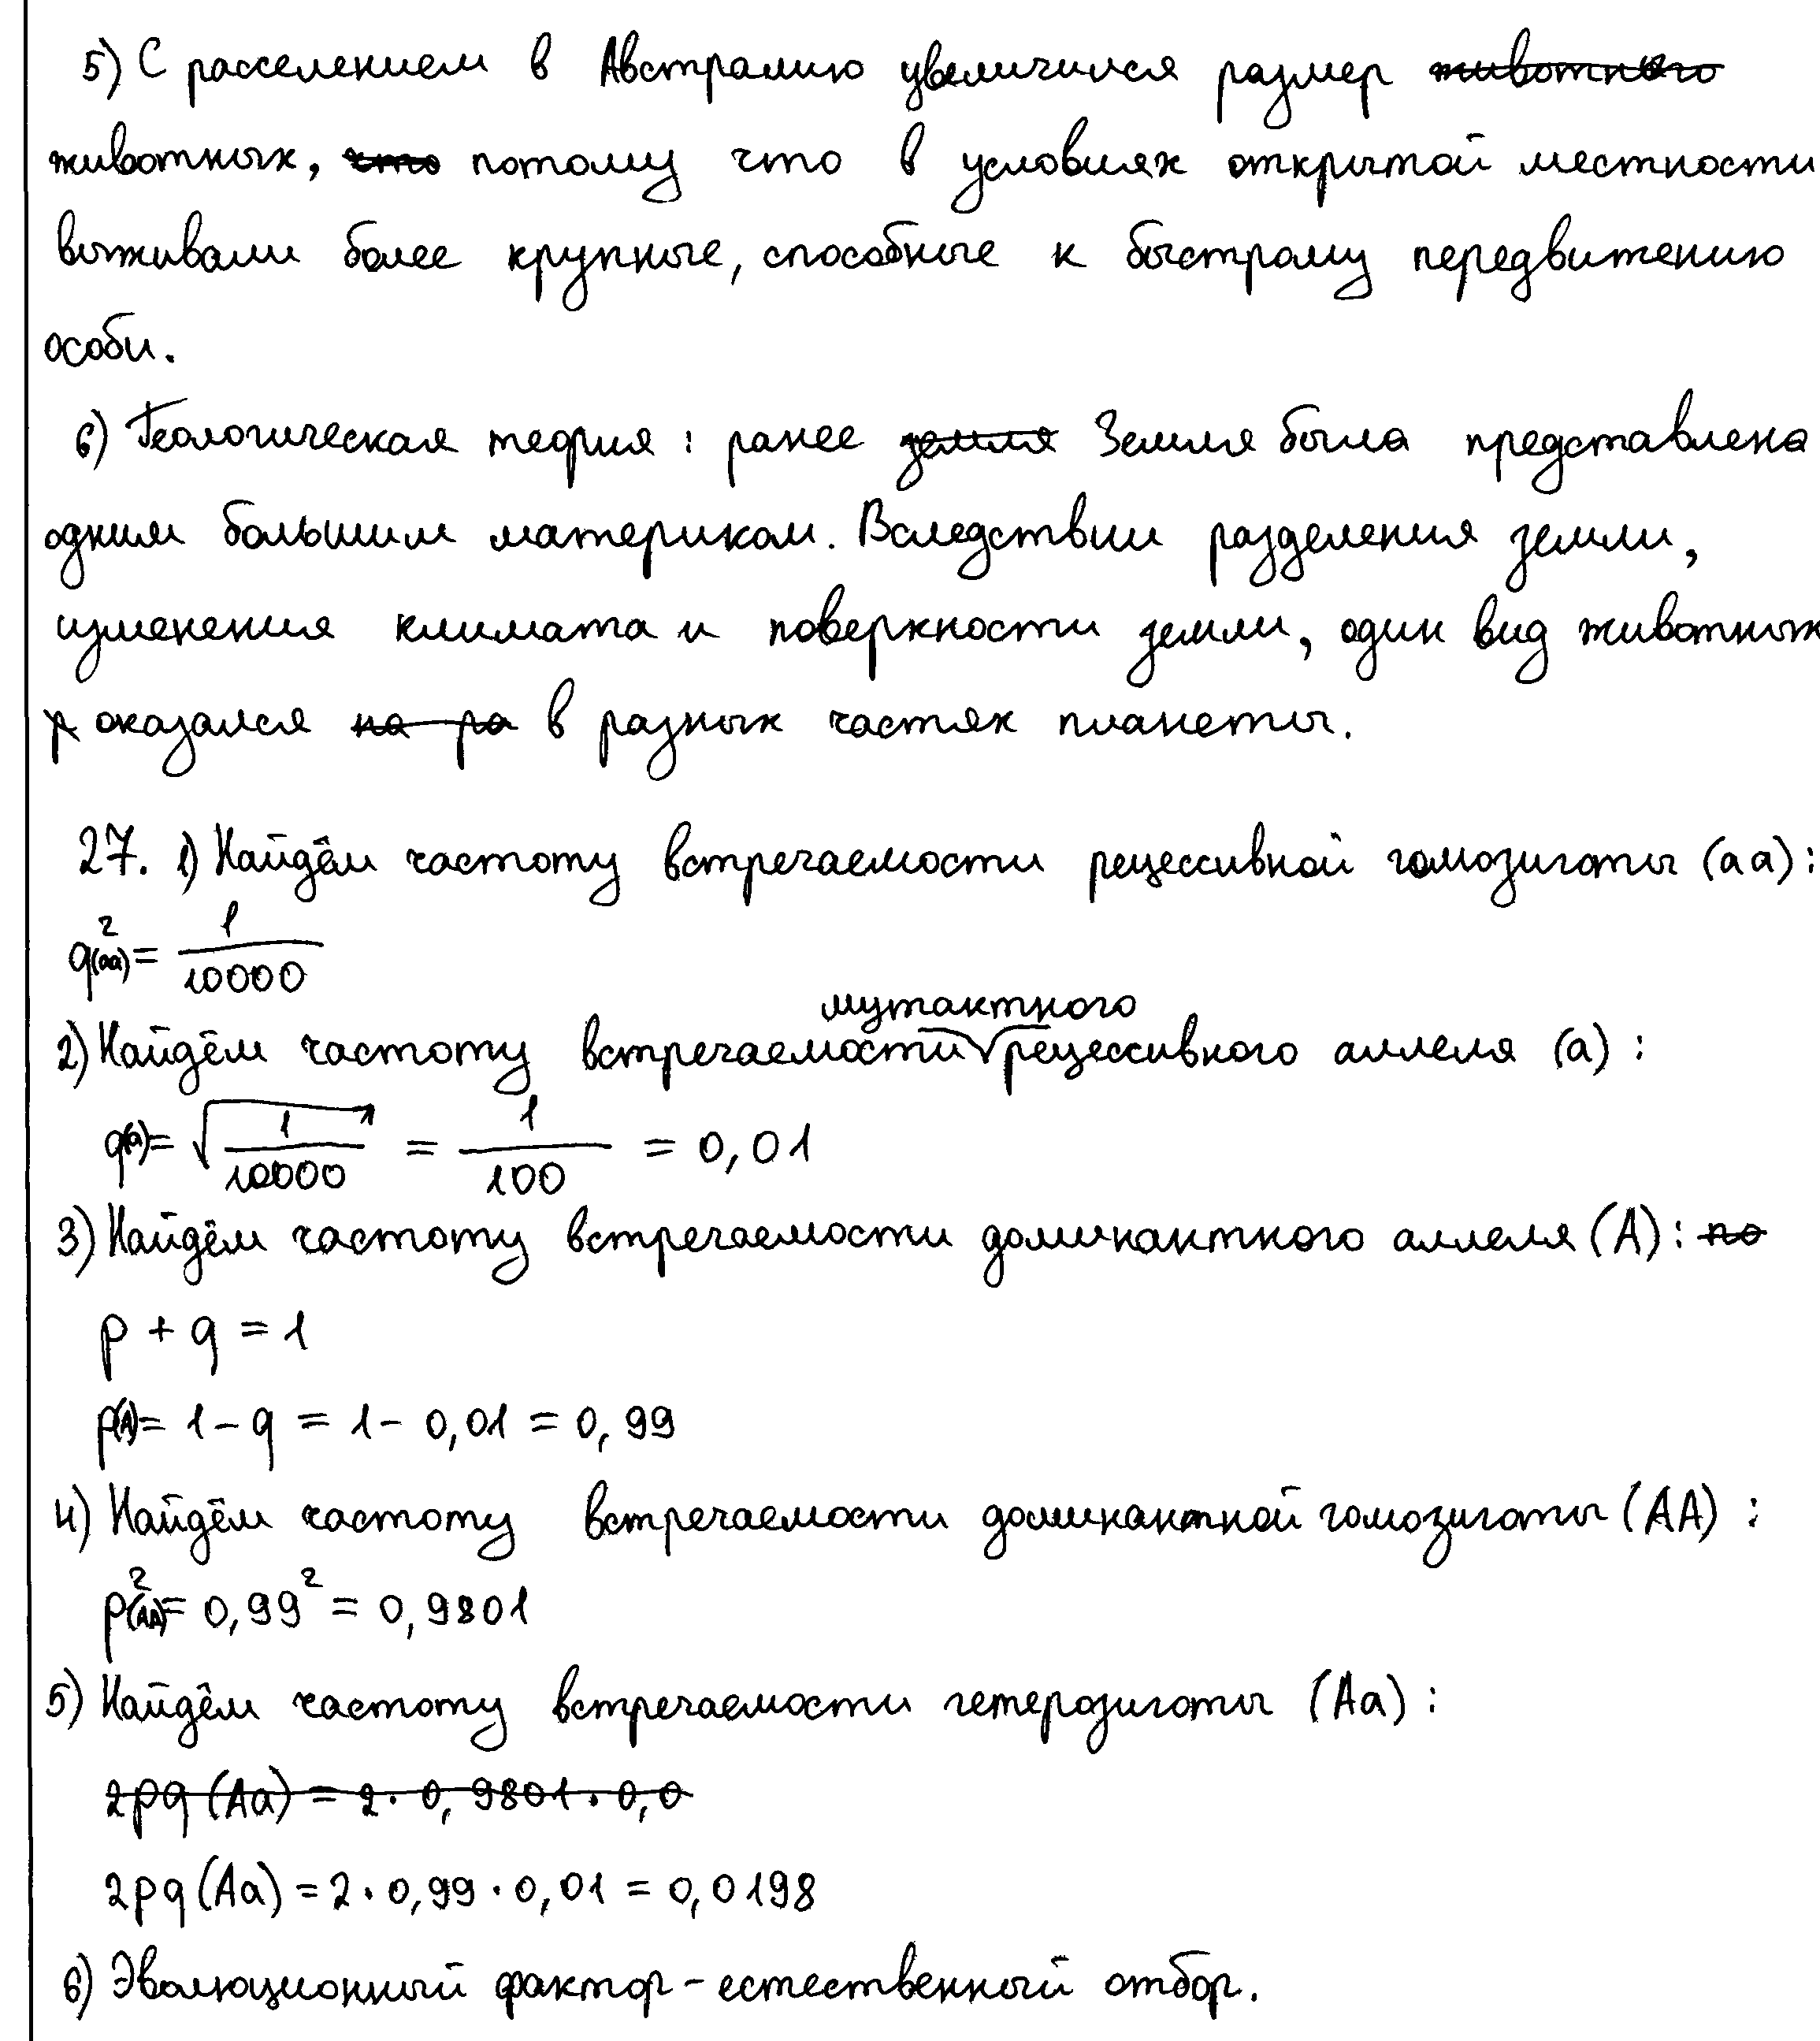 5) С расселением в Австралию увеличился размер животного
животных, что потому что в условиях открытой местности
выживали более крупные, способные к быстрому передвижению
особи.
6) Геологическая теория: ранее земля Земля была представлена
одним большим материком. Вследствии разделения земли,
изменения климата и поверхности земли, один вид животных
р оказался на ра в разных частях планеты.
27. 1) Найдём частоту встречаемости рецессивной гомозиготы (аа):
q²(аа) = 1/10000
мутантного
2) Найдём частоту встречаемости √ рецессивного аллеля (а):
q(а) = √(1/10000) = 1/100 = 0,01
3) Найдём частоту встречаемости доминантного аллеля (А): по
p + q = 1
p(А) = 1 - q = 1 - 0,01 = 0,99
4) Найдём частоту встречаемости доминантной гомозиготы (АА):
p²(АА) = 0,99² = 0,9801
5) Найдём частоту встречаемости гетерозиготы (Аа):
2pq (Аа) = 2 · 0,9801 · 0,0
2pq (Аа) = 2 · 0,99 · 0,01 = 0,0198
6) Эволюционный фактор - естественный отбор.